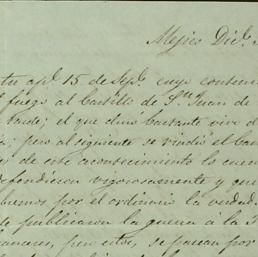 Mejico Dic.e
15 de Sep.e cuyo conteni
fuego al Castillo de S.n Juan de
tarde; el que duro bastante vivo d
pero al siguiente se rindió el Cas
de este acontecimiento lo cuen
defendieron vigorosamente y que
por el ordinario la verdad
publicaron la guerra á la F
pero estos, se pasan por